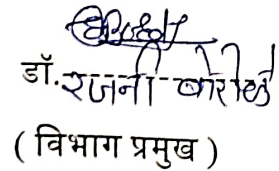 डॉ. रजनी बोरोले
( विभाग प्रमुख )